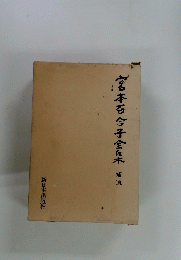 宮本百合子全集
新日本出版社